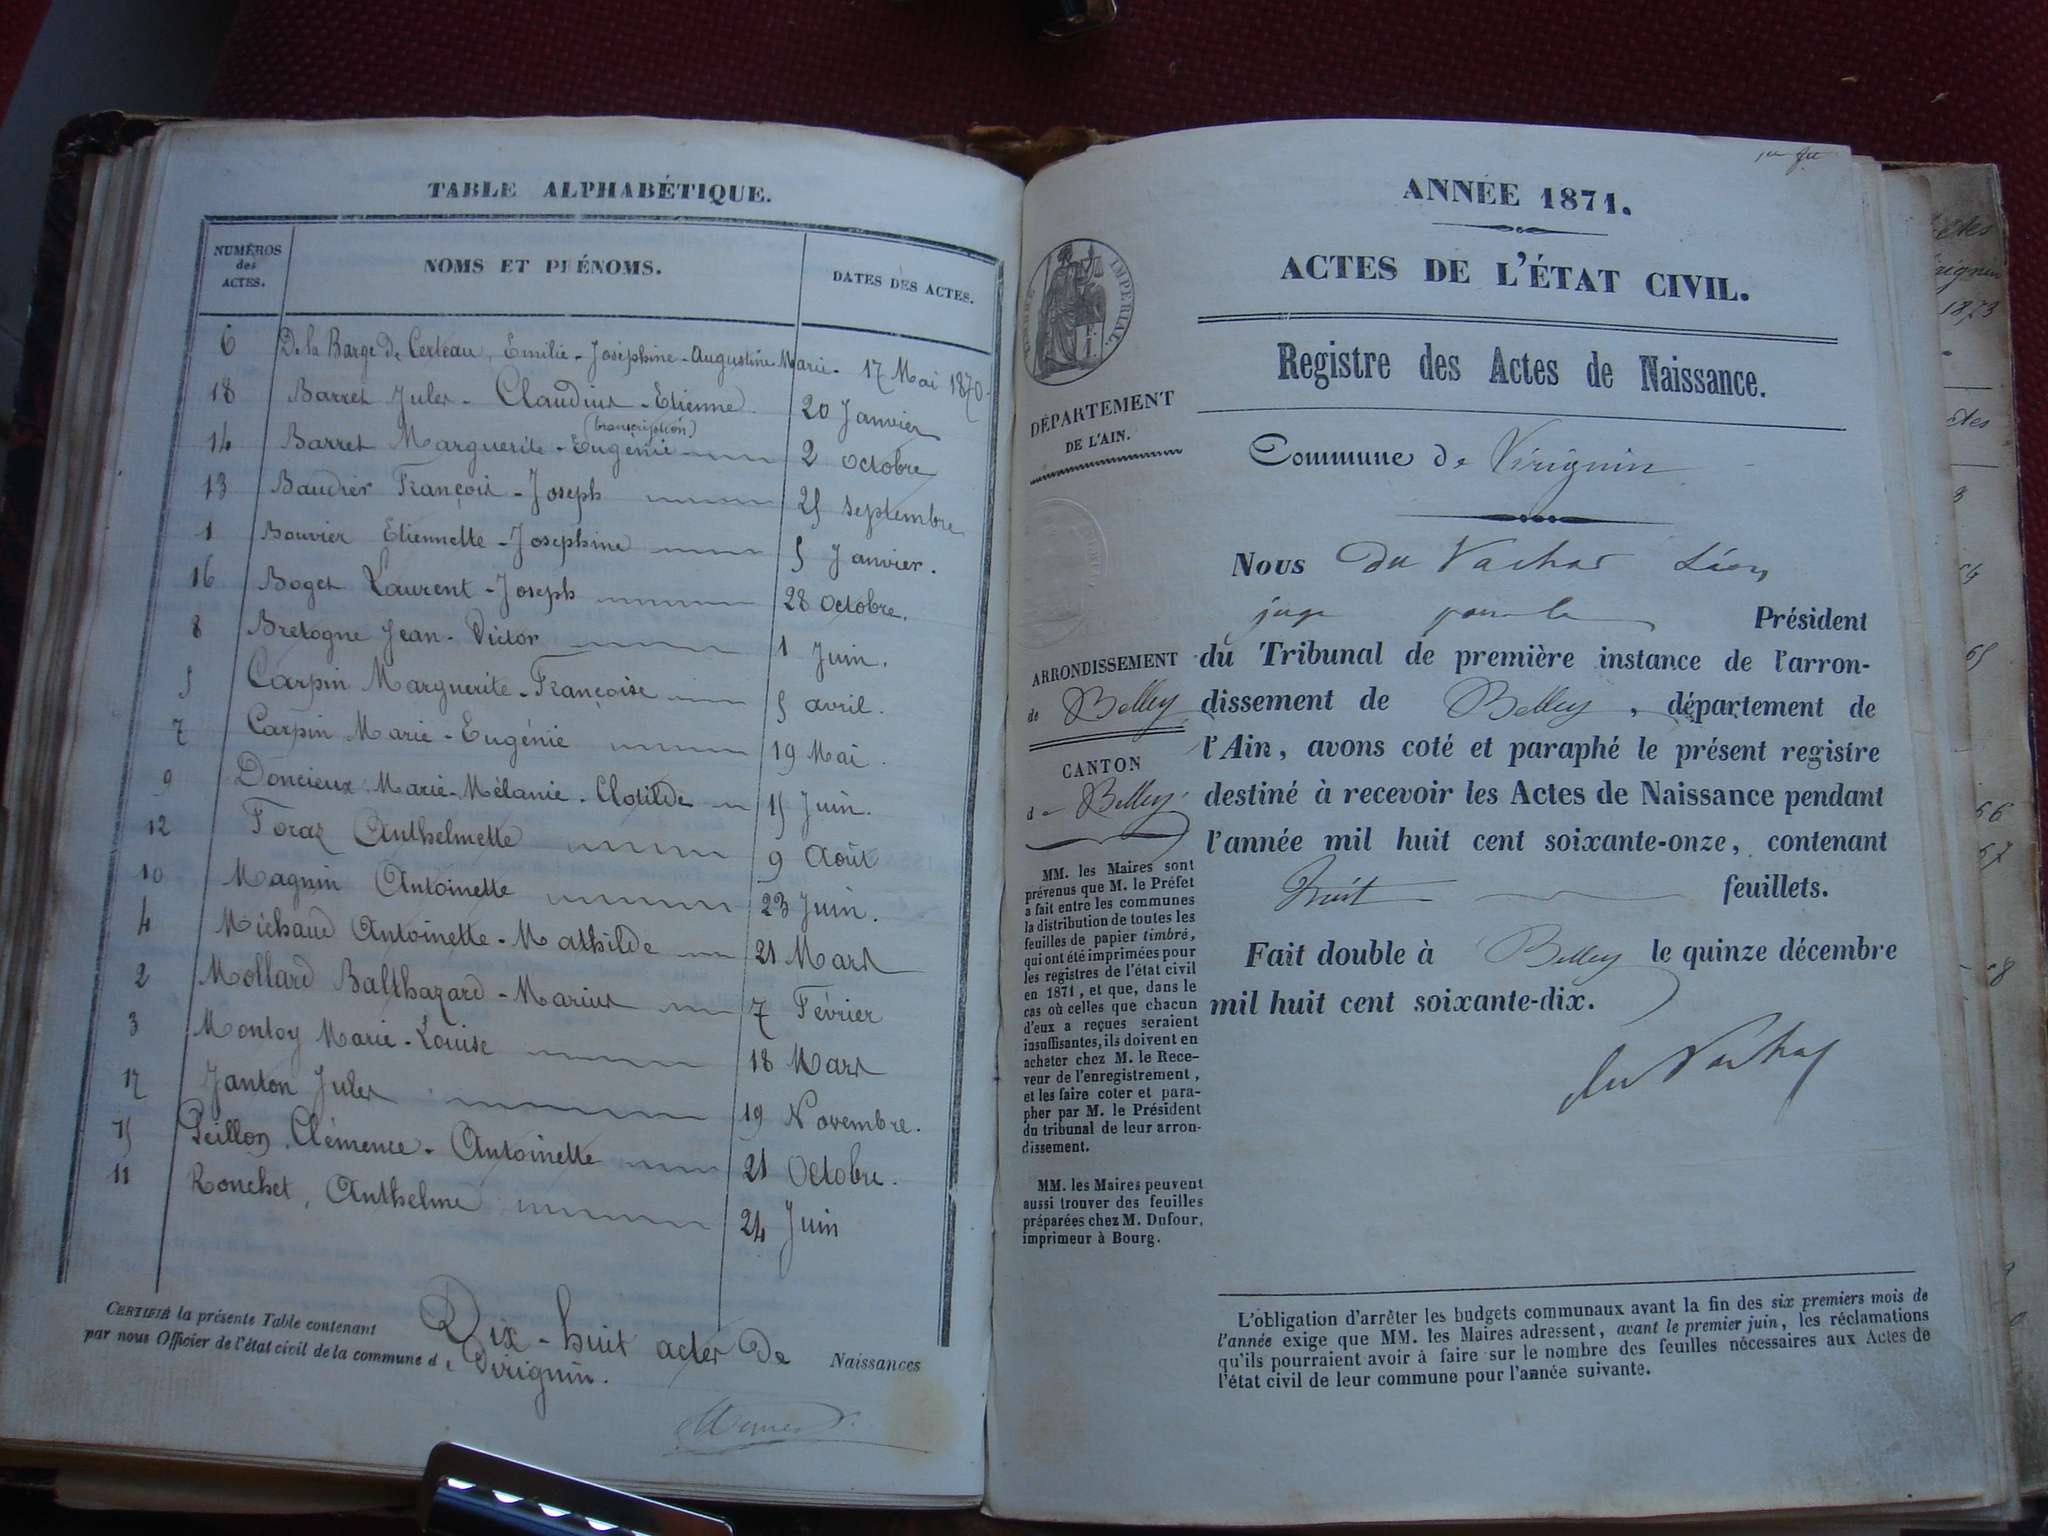 TABLE ALPHABÉTIQUE.
NUMÉROS
des
ACTES.
NOMS ET PRÉNOMS.
DATES DES ACTES.
6 De la Barge de Certeau, Emilie-Joséphine-Augustine-Marie- 17 Mai 1870.
18 Barret Jules-Claudius-Etienne. 20 Janvier
(transcription)
14 Barret Marguerite-Eugénie 2 octobre
13 Baudrier François-Joseph 25 septembre
1 Bouvier Etiennette-Josephine 5 Janvier.
16 Boget Laurent-Joseph 28 octobre.
8 Bretogne Jean-Victor 1 Juin.
5 Carpin Marguerite-Françoise 5 avril.
7 Carpin Marie-Eugénie 19 Mai.
9 Doncieux Marie-Mélanie-Clotilde 15 Juin.
12 Foraz Anthelmette 9 Août
10 Magnin Antoinette 23 Juin.
4 Michaud Antoinette-Mathilde 21 Mars
2 Mollard Balthazard-Marius 7 Février
3 Montoy Marie-Louise 18 Mars
17 Janton Jules 19 Novembre.
15 Peillon, Clémence-Antoinette 21 Octobre.
11 Ronchet, Anthelme 24 Juin
CERTIFIÉ la présente Table contenant Dix-huit actes de Naissances
par nous Officier de l'état civil de la commune de Virignin.
ANNÉE 1871.
ACTES DE L'ÉTAT CIVIL.
Registre des Actes de Naissance.
TIMBRE IMPÉRIAL
DÉPARTEMENT
DE L'AIN.
Commune de Virignin
Nous du Vachat Léon
juge pour le Président
du Tribunal de première instance de l'arron-
dissement de Belley, département de
l'Ain, avons coté et paraphé le présent registre
destiné à recevoir les Actes de Naissance pendant
l'année mil huit cent soixante-onze, contenant
huit feuillets.
Fait double à Belley le quinze décembre
mil huit cent soixante-dix.
du Vachat
ARRONDISSEMENT
de Belley
CANTON
de Belley
MM. les Maires sont
prévenus que M. le Préfet
a fait entre les communes
la distribution de toutes les
feuilles de papier timbré,
qui ont été imprimées pour
les registres de l'état civil
en 1871, et que, dans le
cas où celles que chacun
d'eux a reçues seraient
insuffisantes, ils doivent en
acheter chez M. le Rece-
veur de l'enregistrement,
et les faire coter et para-
pher par M. le Président
du tribunal de leur arron-
dissement.
MM. les Maires peuvent
aussi trouver des feuilles
préparées chez M. Dufour,
imprimeur à Bourg.
L'obligation d'arrêter les budgets communaux avant la fin des six premiers mois de
l'année exige que MM. les Maires adressent, avant le premier juin, les réclamations
qu'ils pourraient avoir à faire sur le nombre des feuilles nécessaires aux Actes de
l'état civil de leur commune pour l'année suivante.
1873